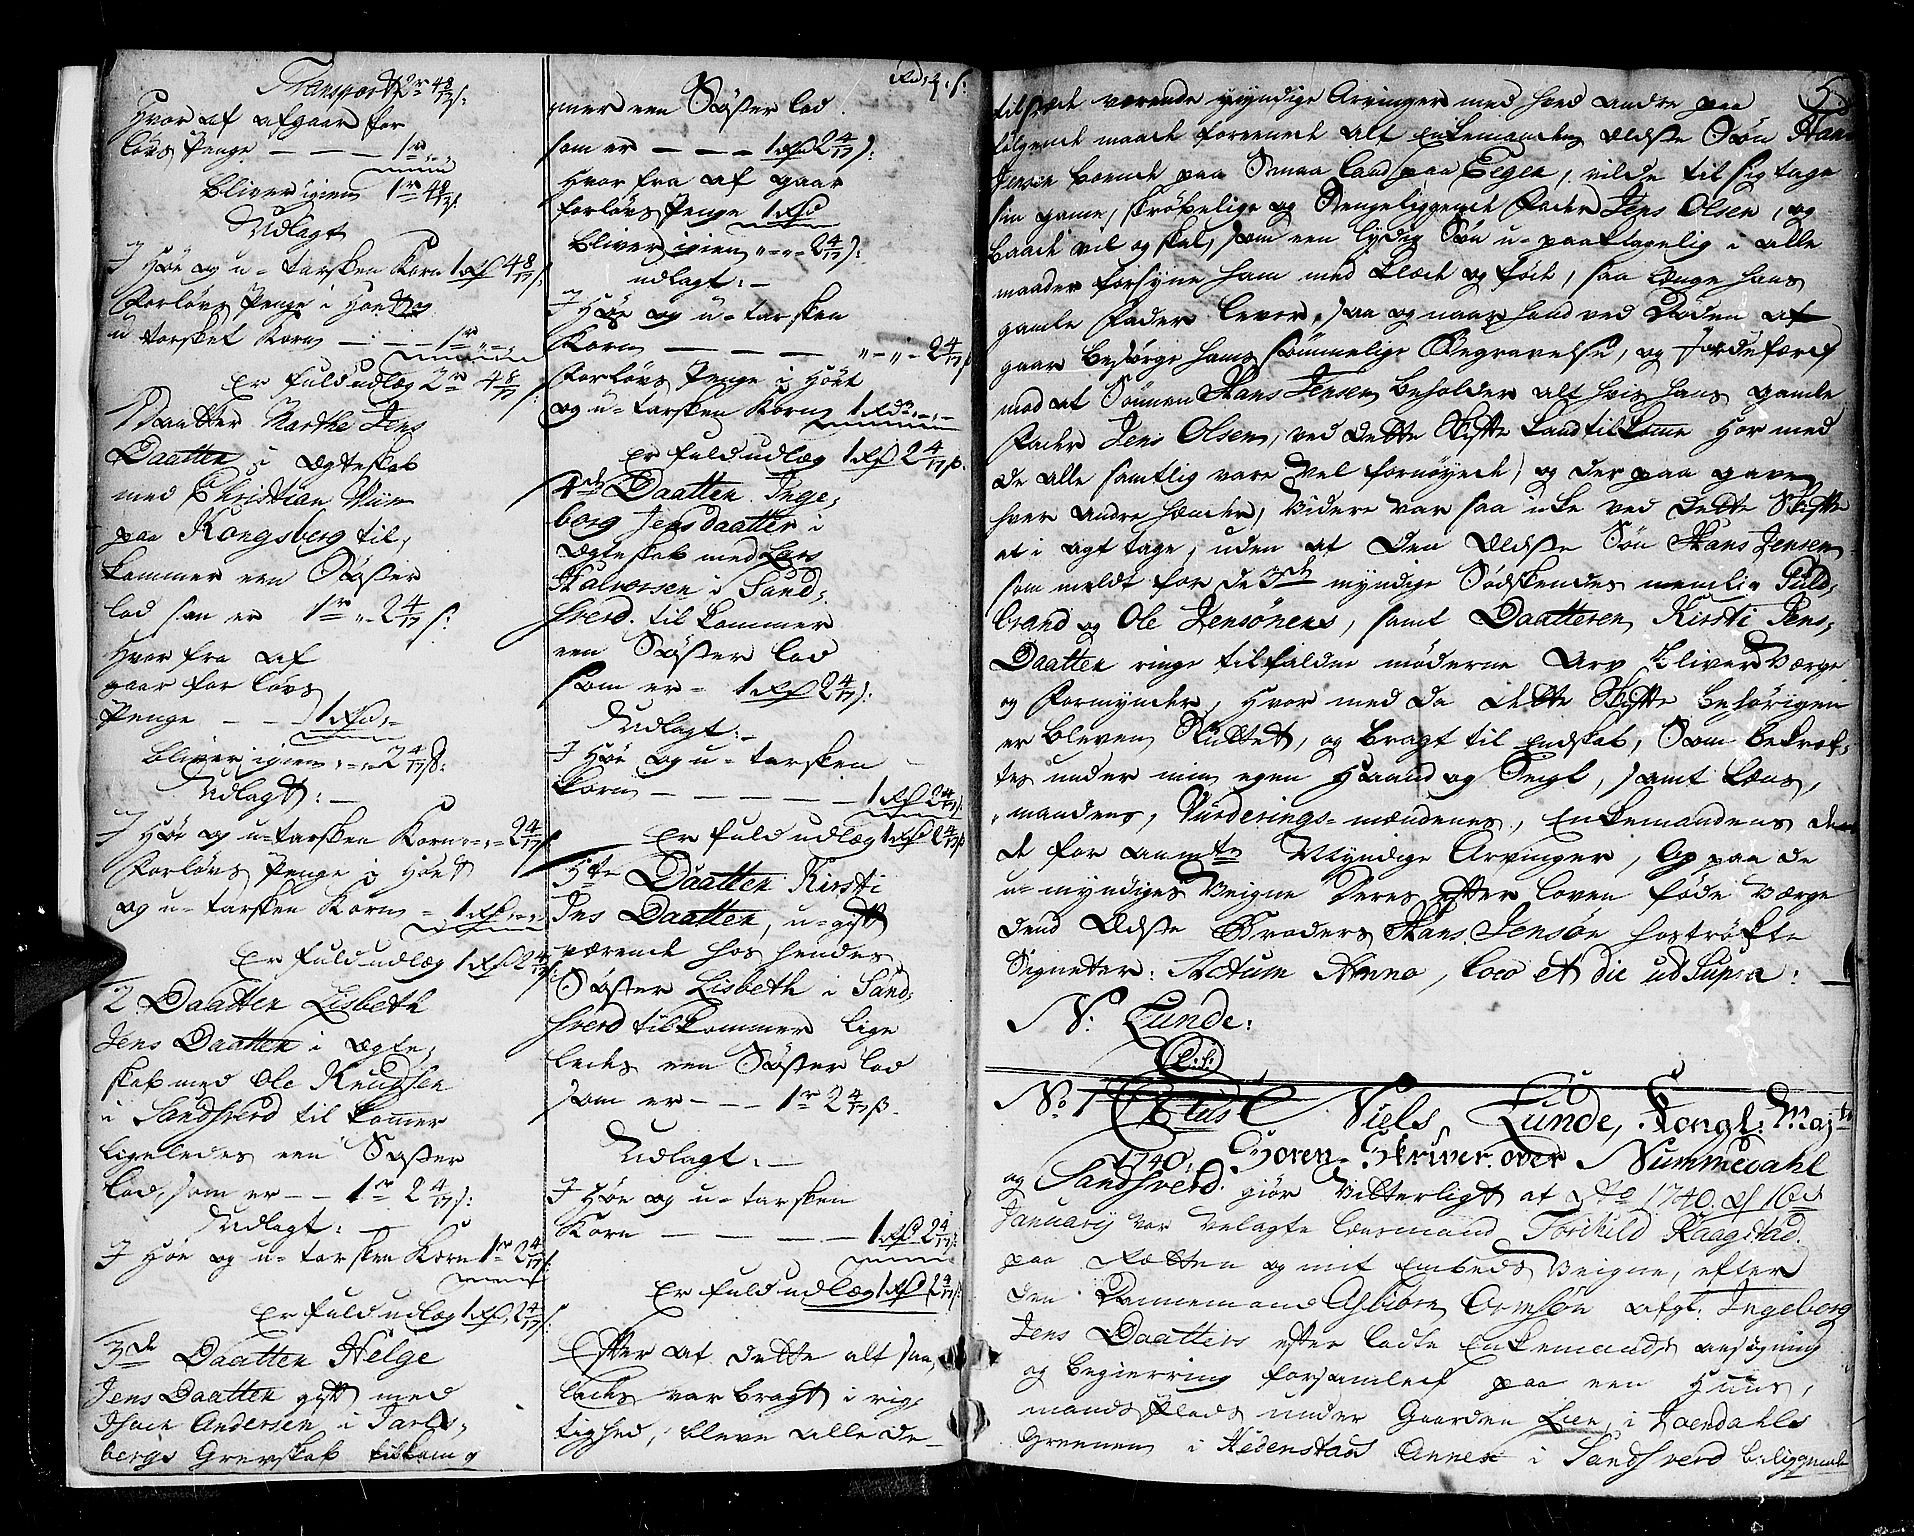 Transport 2r 4 8/17 s:
Hvor af afgaar for
lovs Penge - - - 1r „ „
bliver igien 1r 4 8/17 s:
Udlagt
I Høe og u-tarsken Korn 1 Rd 4 8/17 s:
Forlovs Penge i Høet og
u tarsket Korn - - - 1r „ - „
Er fuld udlæg 2r 4 8/17
Daatter Marthe Jens
Daatter i Egteskab
med Christian
paa Kongsberg til,
kommer een Søster
lod som er 1r „ 2 4/17 s:
Hvor fra af
gaar for lovs
Penge - - 1 Rd „ -
bliver igien „ - „ 2 4/17 s:
Udlagt: -
I Høe og u-tarsken Korn „ - „ 2 4/17
Forlovs Penge i Høet
og u-tarsken Korn - 1 Rd „ - „
Er fuld udlæg 1 Rd 2 4/17
2. Daatter Lisbeth
Jens Daatter i Egte,
skab med Ole Knudsen
i Sandsverd til komer
ligeledes een Søster
lod, som er - - 1r 2 4/17 s:
Udlagt: -
I Høe og u-tarsken Korn 1r 2 4/17 s:
Er fuld udlæg 1 Rd 2 4/17 s:
3de Daatter Helge
Jens Daatter gift med
Isach Andersen i Jarls,
bergs Grevskab tilkom,
Rd: : s:
mer een Søster lod
som er - - - 1 Rd 2 4/17 s:
Hvor fra af gaar
forlovs Penge 1 Rd
bliver igien „ - „ 2 4/17 s:
udlagt: -
I Høe og u-tarsken
Korn - - - - „ - „ - 2 4/17 s
Forlovs Penge i Høet
og u-tarsken Korn 1 Rd „ - „ -
Er fuld udlæg 1 Rd 2 4/17 s.
4de Daatter Inge,
borg Jensdaatter i
Egteskab med Lars
Halvorsen i Sand,
sverd til kommer
een Søster lod
som er - 1 Rd 2 4/17 s:
Udlagt: -
I Høe og u-tarsken
Korn - - - - - 1 Rd 2 4/17 s:
Er fuld udlæg 1 Rd 2 4/17 s
5te Daatter Kirsti
Jens Daatter, u-gift
værende hos hendes
Søster Lisbeth i Sand,
sverd tilkommer lige
ledes een Søster lod
som er - - - 1r 2 4/17 s.
Udlagt: -
I Høe og u-tarsken
Korn - - - - - 1 Rd 2 4/17 s:
Er fuld udlæg 1 Rd 2 4/17 s:
Efter at dette alt saa,
ledes var bragt i rig,
tighed, bleve alle de-
tilstæde værende myndige Arvinger med hver andre paa
følgende maade foreenede at Enkemanden Eldste Søn Hans
Jensen boende paa Smaa land paa Egen, vilde til sig tage
sin gamle, skrøbelige og Sengeliggende Fader Jens Olsen, og
baade vil og skal, som een lydig Søn u-paaklagelig i alle
maader forsyne ham med Klæde og føde, saa længe hans
gamle Fader lever, saa og naar hand ved Døden af
gaar besørge hans sømmelige Begravelse, og Jordefærd
mod at Sønnen Hans Jensen beholder alt hvis hans gamle
Fader Jens Olsen, ved dette Skifte kand tilkome Hor med
de alle samtlig vare vel fornøyede, og der paa gave
hver andre hænder, Videre var saa icke ved dette Skifte
at i agt tage, uden at den Eldste Søn Hans Jensen
som meldt for de 3de myndige Sødskendes nemlig Guld,
brand og Ole Jensønens, samt Daatteren Kirsti Jens,
Daatter ringe tilfalden møderne Arv bliver Værge
og Formynder, Hvor med da dette Skifte behørigen
er bleven Sluttet, og bragt til Endskab, Som bekræf,
tes under min egen Haand og Seigl, samt Læns,
mandens, Vurderings-mændenes, Enkemandens de
de for nænte Myndige Arvinger, og paa de
u-myndiges Veigne deres efter loven føde Værge
dend Eldste Broders Hans Jensøn hostrøkte
Signeter: Actum Anno, loco et die ud Supra:
N: Lunde:
(L:S:)
No 1 Niels Lunde, Kongl: Mayts
1740. Soren-Skriver over Nummedahl
og Sandsverd giør vitterligt at Ao 1740. d 16de
January var velagte lænsmand Torchild Kaagstad
paa Rettens og mit Embeds Veigne, efter
den Dannemand Asbiørn Ormsøn afgl: Ingeborg
Jens Daatters efter ladte Enkemands ansøgning
og begierring forsamled paa een Huus,
mands Plads under Gaarden Lien, i Joendahls
Grennen i Hedenstads Annex i Sandsverd beliggende